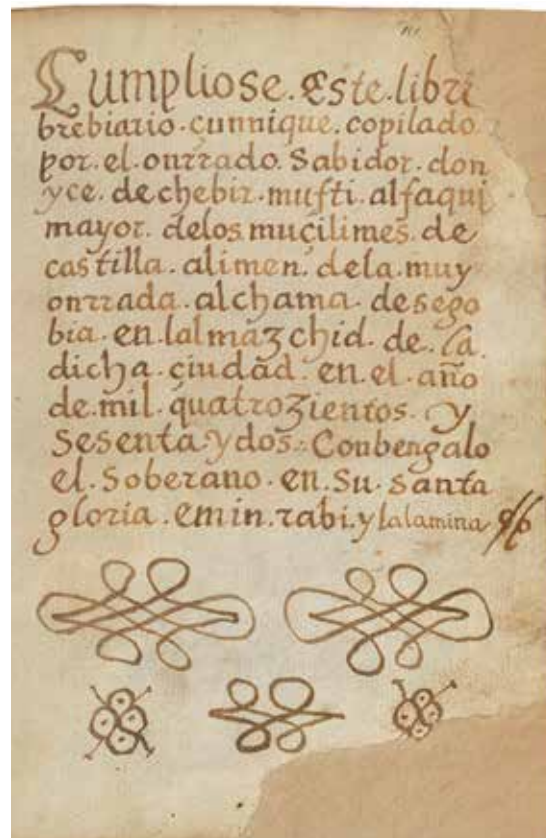 Cumpliose. Este. libri
brebiario. çunnique. copilado
por. el. onrrado. Sabidor. don
yce. de chebir. mufti. alfaqui
mayor. delos muçilimes. de
castilla. alimen. dela. muy
onrrada. alchama. desego
bia. en. lalmazchid. de. la.
dicha. çiudad. en. el. año
de. mil. quatrozientos. y
Sesenta. y dos. Conbengalo
el. Soberano. en. Su. Santa
gloria. emin. rabi. y lalamina